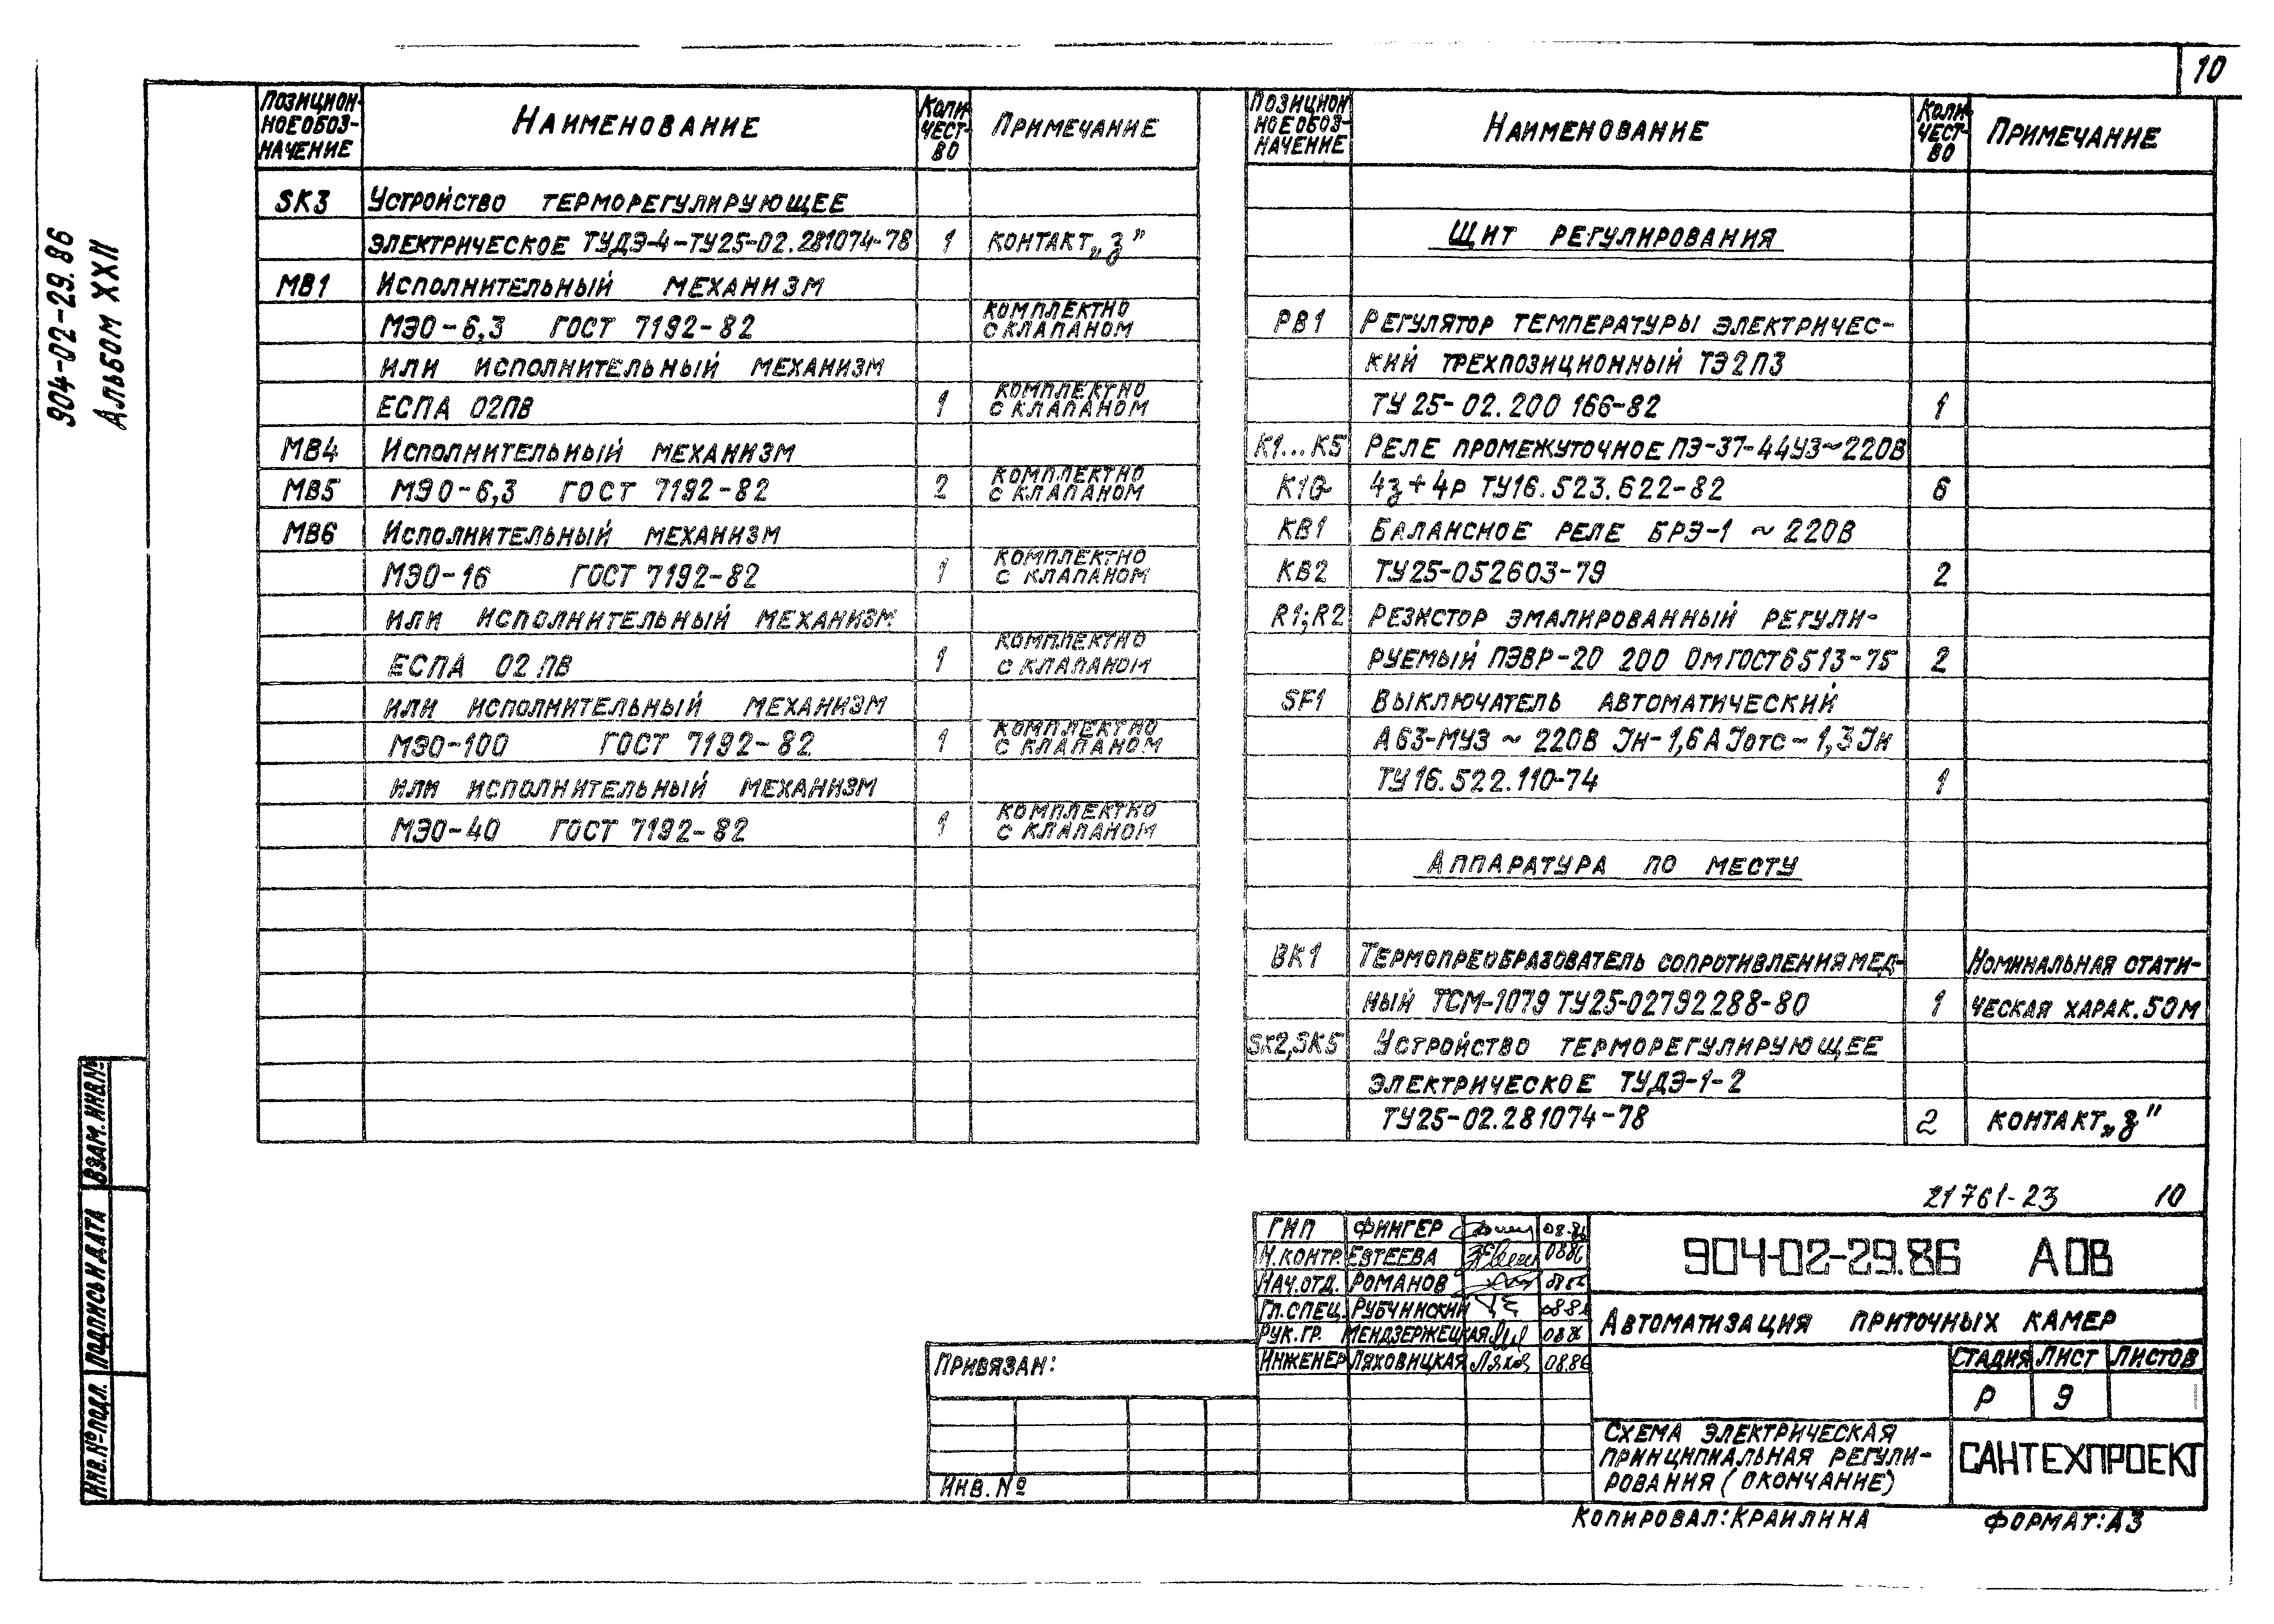 10
904-02-29.86
Альбом XXII
Позицион-
ное обоз-
начение
Наименование
Коли-
чест-
во
Примечание
SK3 Устройство терморегулирующее
электрическое ТУДЭ-4-ТУ25-02.281074-78 1 контакт „з”
МВ1 Исполнительный механизм
МЭО-6,3 ГОСТ 7192-82 комплектно с клапаном
или исполнительный механизм
ЕСПА 02ПВ 1 комплектно с клапаном
МВ4 Исполнительный механизм
МВ5 МЭО-6,3 ГОСТ 7192-82 2 комплектно с клапаном
МВ6 Исполнительный механизм
МЭО-16 ГОСТ 7192-82 1 комплектно с клапаном
или исполнительный механизм
ЕСПА 02 ПВ 1 комплектно с клапаном
или исполнительный механизм
МЭО-100 ГОСТ 7192-82 1 комплектно с клапаном
или исполнительный механизм
МЭО-40 ГОСТ 7192-82 1 комплектно с клапаном
Позицион
ное обоз-
начение
Наименование
Коли-
чест-
во
Примечание
Щит регулирования
РВ1 Регулятор температуры электричес-
кий трехпозиционный ТЭ2П3
ТУ 25-02.200 166-82 1
К1...К5 Реле промежуточное ПЭ-37-44У3~220В
К10 4з+4р ТУ16.523.622-82 6
КВ1 Балансное реле БРЭ-1 ~ 220В
КВ2 ТУ25-052603-79 2
R1;R2 Резистор эмалированный регули-
руемый ПЭВР-20 200 Ом ГОСТ 6513-75 2
SF1 Выключатель автоматический
А63-МУ3 ~ 220В Iн-1,6А Iотс-1,3Iн
ТУ16.522.110-74 1
Аппаратура по месту
ВК1 Термопреобразователь сопротивления мед- Номинальная стати-
ный ТСМ-1079 ТУ25-02792288-80 1 ческая харак. 50М
SK2,SK5 Устройство терморегулирующее
электрическое ТУДЭ-1-2
ТУ25-02.281074-78 2 контакт „з”
21761-23 10
ГИП Фингер 08.86
Н.контр. Евтеева 0886
Нач.отд. Романов 0886
Гл.спец. Рубчинский 0886
Рук.гр. Мендзержецкая 0886
Инженер Ляховицкая Ляхов 08.86
904-02-29.86 АОВ
Автоматизация приточных камер
Стадия Лист Листов
Р 9
Схема электрическая
принципиальная регули-
рования (окончание)
САНТЕХПРОЕКТ
Привязан:
Инв. №
Взам. инв №
Подпись и дата
Инв. № подл.
Копировал: Краилина Формат: А3